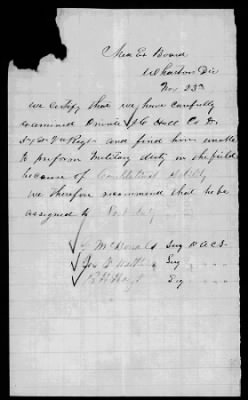 Med Ex Board
Whartons Div
Nov 23rd
We certify that we have carefully
examined Private Hall Co
Regt and find him unable
to preform Military duty in the field
because of Constitutional debility
We therefore recommend that he be
assigned to Post duty
McDonald Surg P.A.C.S.
Surg
Surg